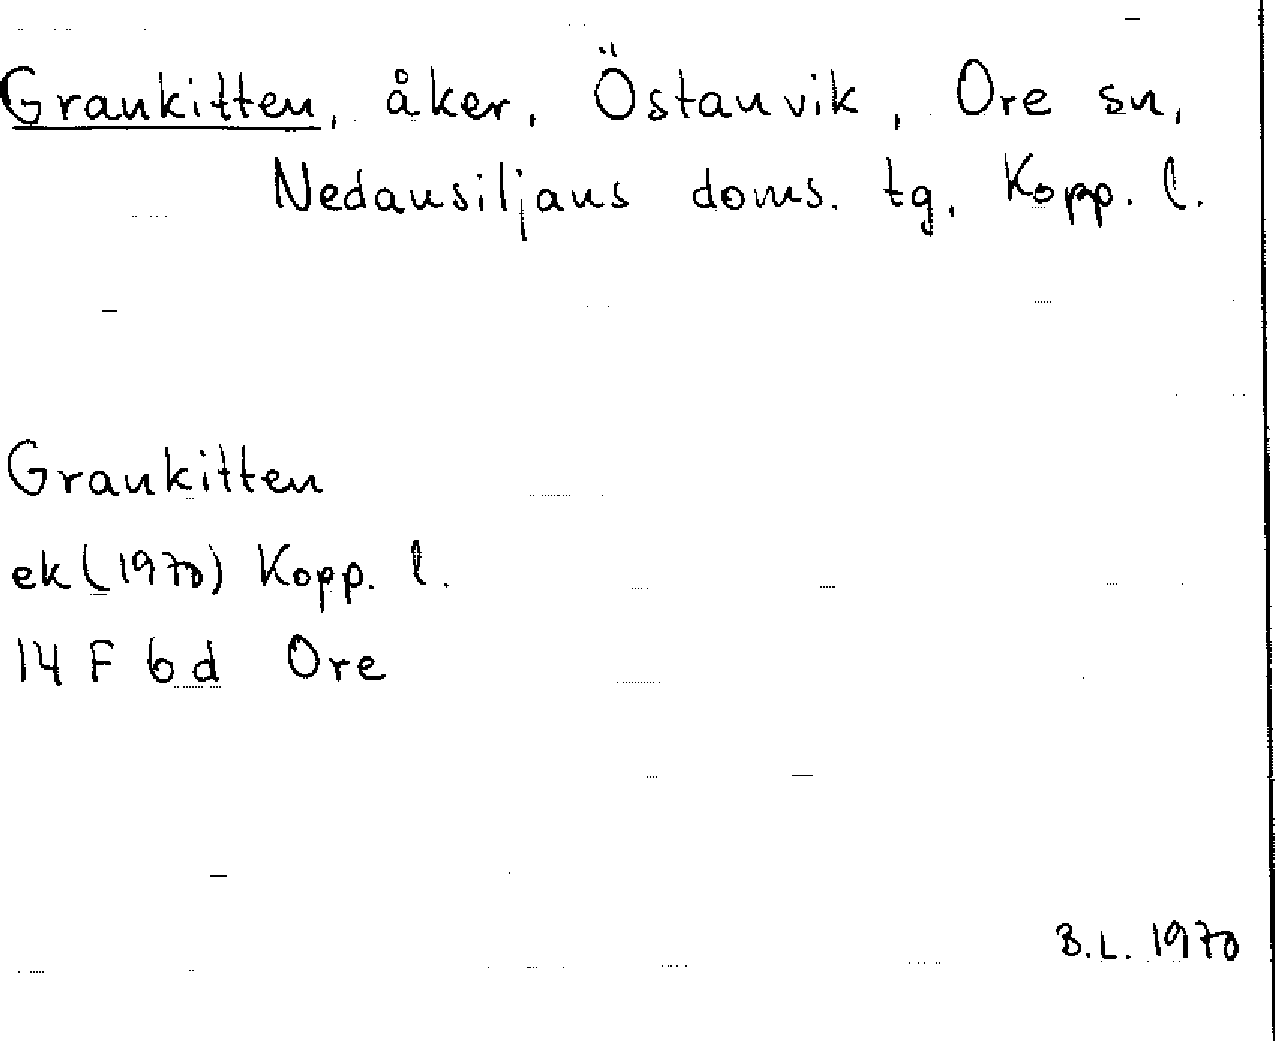 Grankitten, åker, Östanvik, Ore sn,
Nedansiljans doms. tg, Kopp. l.
Grankitten
ek (1970) Kopp. l.
14 F 6 d Ore
B.L. 1970